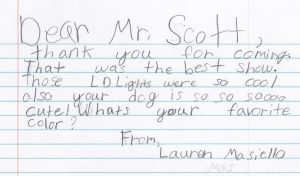 Dear Mr. Scott,
thank you for coming.
That was the best show.
Those LDLights were so cool
also your dog is so so soooo
cute! Whats your favorite
color?
From,
Lauren Masiello
Mas